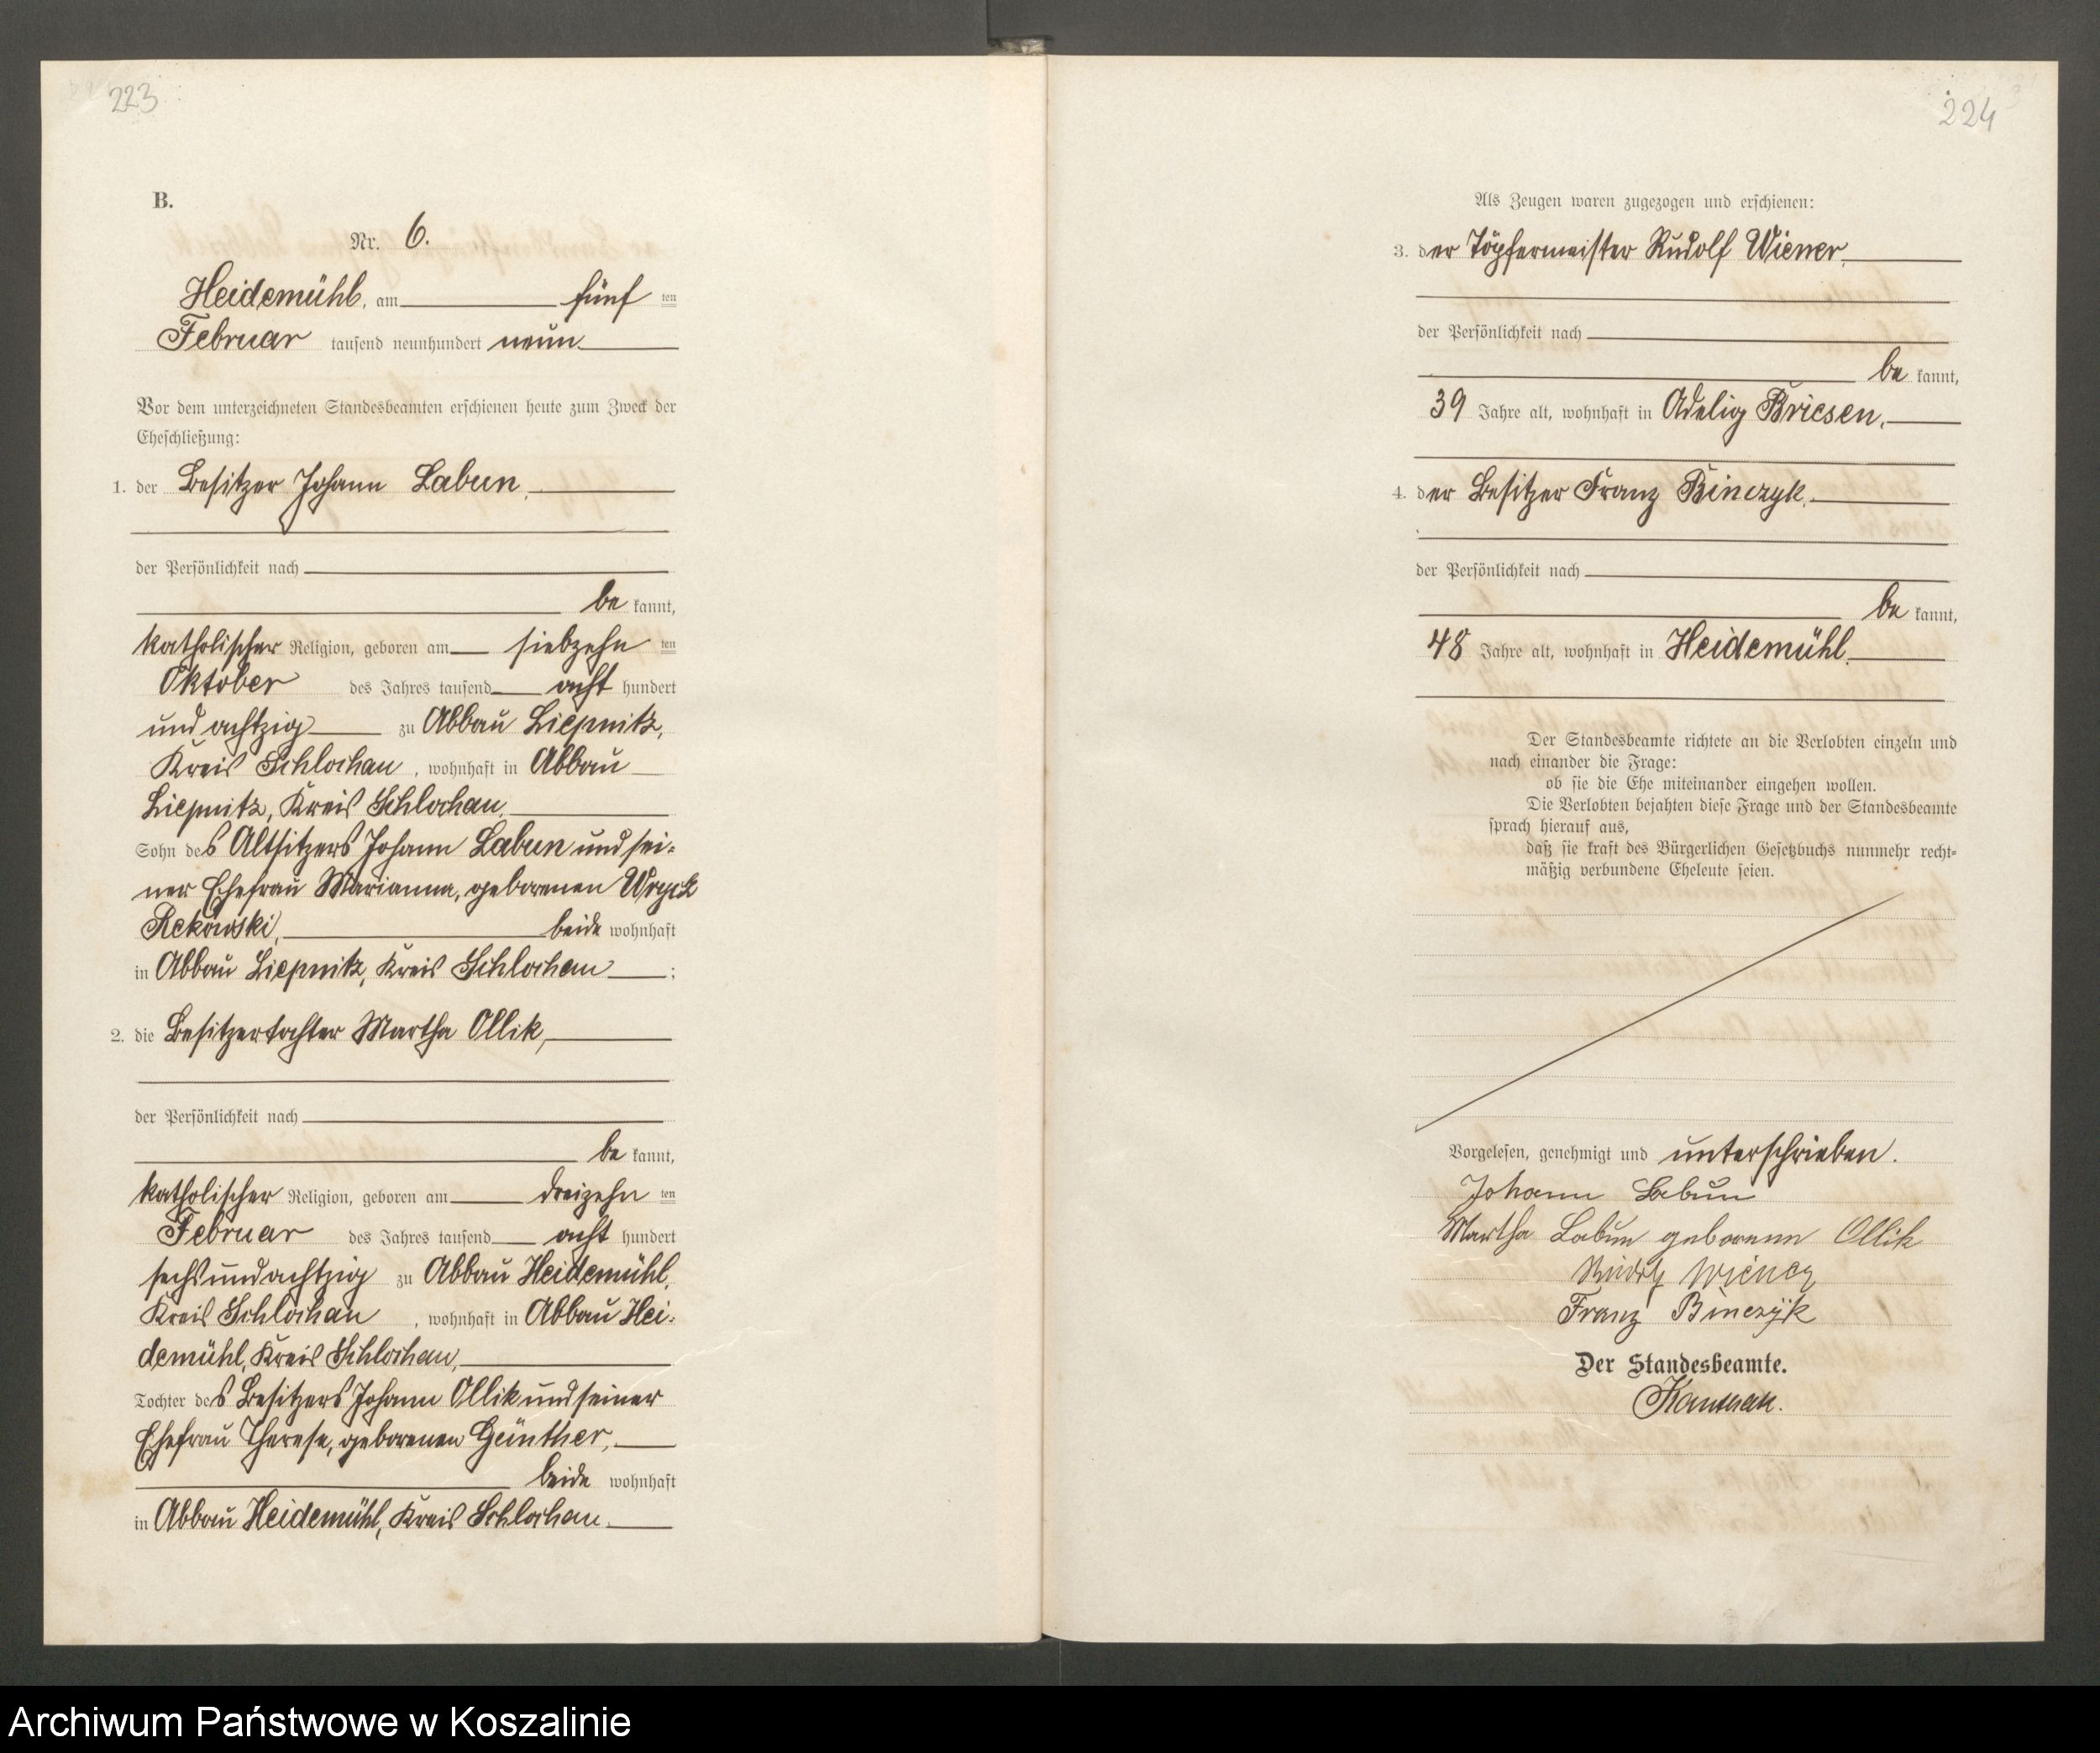 223
B.
Nr. 6.
Heidemühl, am fünf ten
Februar tausend neunhundert neun
Vor dem unterzeichneten Standesbeamten erschienen heute zum Zweck der
Eheschließung:
1. der Besitzer Johann Labun,
der Persönlichkeit nach
be kannt,
katholischer Religion, geboren am siebzehn ten
Oktober des Jahres tausend acht hundert
und achtzig zu Abbau Liepnitz,
Kreis Schlochau, wohnhaft in Abbau
Liepnitz, Kreis Schlochau,
Sohn des Altsitzers Johann Labun und sei=
ner Ehefrau Marianna, geborenen Wryck
Rekowski, beide wohnhaft
in Abbau Liepnitz, Kreis Schlochau ;
2. die Besitzertochter Martha Ollik,
der Persönlichkeit nach
be kannt,
katholischer Religion, geboren am dreizehn ten
Februar des Jahres tausend acht hundert
sechsundachtzig zu Abbau Heidemühl,
Kreis Schlochau, wohnhaft in Abbau Hei=
demühl, Kreis Schlochau,
Tochter des Besitzers Johann Ollik und seiner
Ehefrau Therese, geborenen Günther,
beide wohnhaft
in Abbau Heidemühl, Kreis Schlochau.
224
Als Zeugen waren zugezogen und erschienen:
3. der Töpfermeister Rudolf Wiener,
der Persönlichkeit nach
be kannt,
39 Jahre alt, wohnhaft in Adelig Briesen,
4. der Besitzer Franz Binczyk,
der Persönlichkeit nach
be kannt,
48 Jahre alt, wohnhaft in Heidemühl.
Der Standesbeamte richtete an die Verlobten einzeln und
nach einander die Frage:
ob sie die Ehe miteinander eingehen wollen.
Die Verlobten bejahten diese Frage und der Standesbeamte
sprach hierauf aus,
daß sie kraft des Bürgerlichen Gesetzbuchs nunmehr recht=
mäßig verbundene Eheleute seien.
Vorgelesen, genehmigt und unterschrieben.
Johann Labun
Martha Labun geborene Ollik
Rudolf Wiener
Franz Binczyk
Der Standesbeamte.
Archiwum Państwowe w Koszalinie